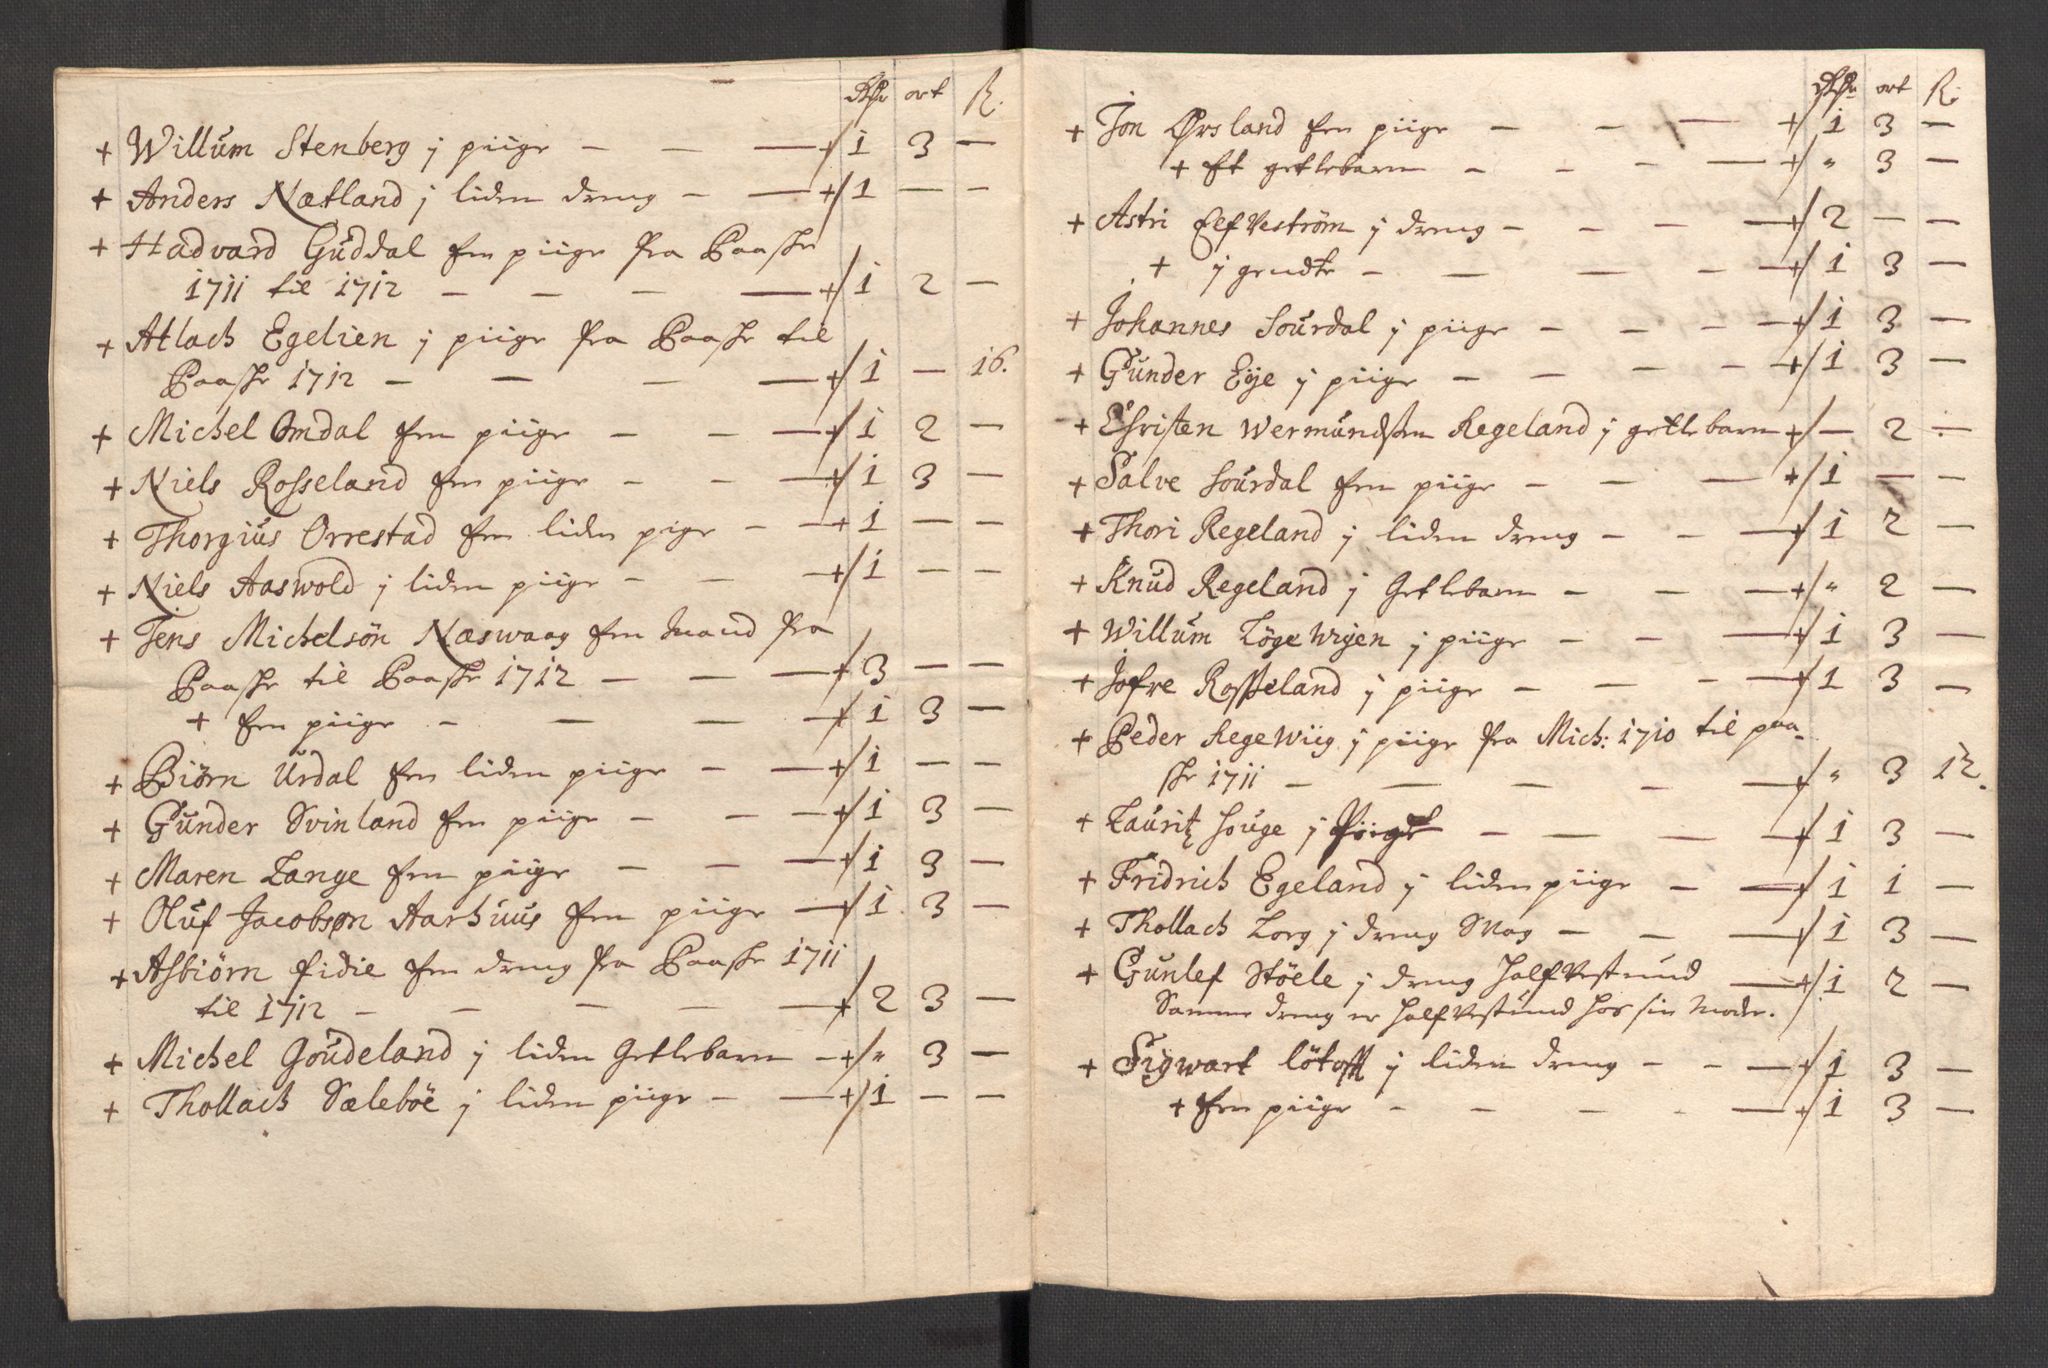 Rdr ort ß.
+ Willum Stenberg j piige — — — +/ 1 3 —
+ Anders Nætland j liden dreng — — +/ 1 — —
+ Hadvard Guddal Een piige fra Paaske
1711 til 1712 — — — — +/ 1 2 —
+ Atlach Egelien j piige fra Paaske til
Paaske 1712 — — — — +/ 1 — 16.
+ Michel Omdal Een piige — — — +/ 1 2 —
+ Niels Rosseland Een piige — — — +/ 1 3 —
+ Thorgius Orrestad Een liden pige — — +/ 1 — —
+ Niels Aaswold j liden piige — — — +/ 1 — —
+ Jens Michelsön Næswaag Een Mand fra
Paaske til Paaske 1712 — — — +/ 3 — —
+ Een piige — — — — +/ 1 3 —
+ Biörn Urdal Een liden piige — — +/ 1 — —
+ Gunder Svinland Een piige — — — +/ 1 3 —
+ Maren Lange Een piige — — — +/ 1 3 —
+ Oluf Jacobsøn Aarhuus Een piige — +/ 1 3 —
+ Asbiörn Eidie Een dreng fra Paaske 1711
til 1712 — — — — — +/ 2 3 —
+ Michel Goudeland j liden Getlebarn — +/ " 3 —
+ Thollach Sæleböe j liden piige — — +/ 1 — —
Rdr ort ß.
+ Jon Ørsland Een piige — — — +/ 1 3 —
+ Et getlebarn — — — — +/ " 3 —
+ Astri Elfveström j dreng — — — — +/ 2 — —
+ j gendte — — — — +/ 1 3 —
+ Johannes Sourdal j piige — — — — +/ 1 3 —
+ Gunder Eye j piige — — — — +/ 1 3 —
+ Christen Wermundsen Regeland j getlebarn +/ — 2 —
+ Salve Sourdal Een piige — — — +/ 1 — —
+ Thori Regeland j liden dreng — — — +/ 1 2 —
+ Knud Regeland j Getlebarn — — — +/ " 2 —
+ Willum Löge Wigen j piige — — — +/ 1 3 —
+ Jofre Rosseland j piige — — — — +/ 1 3 —
+ Peder Regewiig j piige fra Mich: 1710 til paa-
ske 1711 — — — — — +/ " 3 12.
+ Lauritz Houge j Piige — — — +/ 1 3 —
+ Fridrich Egeland j liden piige — — +/ 1 1 —
+ Thollach Log j dreng Svag — — — +/ 1 3 —
+ Gunlef Stöele j dreng half Vestund — +/ 1 2 —
Samme dreng er half Vestund hos sin Moder.
+ Sigwart j liden dreng — — — +/ 1 3 —
+ Een piige — — — — — +/ 1 3 —